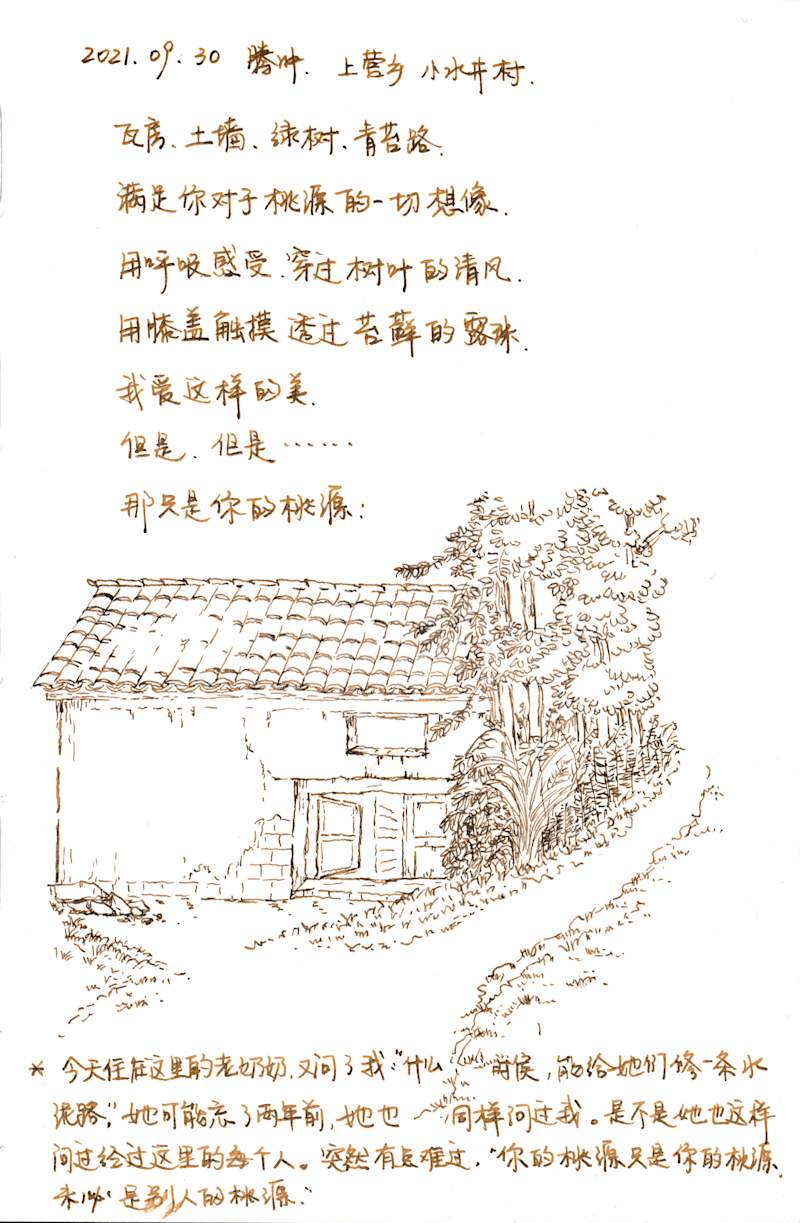 2021.09.30 腾冲. 上营乡 小水井村.
瓦房、土墙、绿树、青苔路.
满足你对于桃源的一切想像.
用呼吸感受.穿过树叶的清风.
用膝盖触摸 透过苔藓的露珠.
我爱这样的美.
但是.但是……
那只是你的桃源:
* 今天住在这里的老奶奶,又问了我:"什么时候,能给她们修一条水
泥路,"她可能忘了两年前,她也同样问过我。是不是她也这样
问过经过这里的每个人。突然有点难过,"你的桃源只是你的桃源.
未必是别人的桃源."